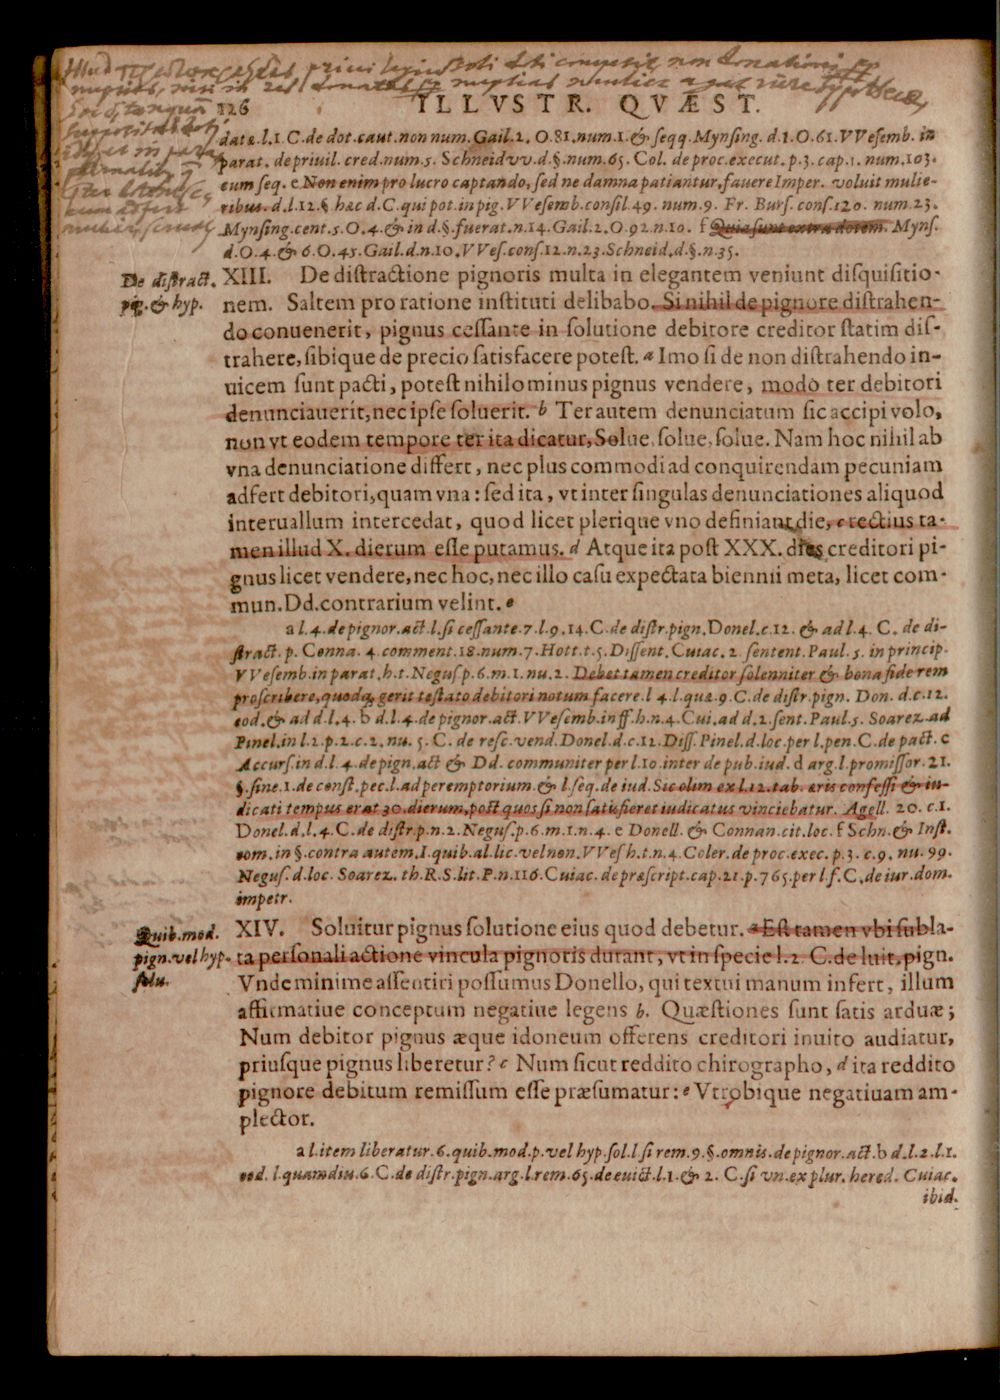 126
ILLVSTR. QVÆST.
datæ.l.1.C.de dot.caut.non num.Gail.2.O.81.num.1.& seqq.Mynsing.d.1.O.61.VVesemb.in
parat.de priuil.cred.num.5. Schneidvv.d.§.num.65. Col. de proc.execut.p.3.cap.1.num.103.
cum seq. e Non enim pro lucro captando, sed ne damna patiantur, fauere Imper. voluit mulie-
ribus.d.l.12.§ hæc d.C.qui pot.in pig.VVesemb.consil.49. num.9. Fr. Burs. cons.120. num.23.
Mynsing.cent.5.O.4.& in d.§.fuerat.n.14.Gail.2.O.92.n.10. f Quia sunt extra dotem. Myns.
d.O.4.& 6.O.45.Gail.d.n.10.VVes.cons.12.n.23.Schneid.d.§.n.35.
De distract.
pig.& hyp.
XIII. De distractione pignoris multa in elegantem veniunt disquisitio-
nem. Saltem pro ratione instituti delibabo. Si nihil de pignore distrahen-
do conuenerit, pignus cessante in solutione debitore creditor statim dis-
trahere, sibique de precio satisfacere potest. a Imo si de non distrahendo in-
uicem sunt pacti, potest nihilominus pignus vendere, modo ter debitori
denunciauerit, nec ipse soluerit. b Ter autem denunciatum sic accipi volo,
non vt eodem tempore ter ita dicatur, Solue, solue, solue. Nam hoc nihil ab
vna denunciatione differt, nec plus commodi ad conquirendam pecuniam
adfert debitori, quam vna: sed ita, vt inter singulas denunciationes aliquod
interuallum intercedat, quod licet plerique vno definiant die, c rectius ta-
men illud X. dierum esse putamus. d Atque ita post XXX. dies creditori pi-
gnus licet vendere, nec hoc, nec illo casu expectata biennii meta, licet com-
mun. Dd. contrarium velint. e
a l.4.de pignor.act.l.si cessante.7.l.9.14.C.de distr.pign.Donel.c.12. & ad l.4. C. de di-
stract. p. Conna. 4. comment.18.num.7.Hott.t.5.Dissent.Cuiac.2.sentent.Paul.5. in princip.
VVesemb.in parat.h.t.Negus.p.6.m.1.nu.2. Debet tamen creditor solenniter & bona fide rem
proscribere, quodq; gerit testato debitori notum facere.l 4.l.quæ.9.C.de distr.pign. Don. d.c.12.
eod.& ad d.l.4. b d.l.4.de pignor.act.VVesemb.in ff.h.n.4.Cui.ad d.2.sent.Paul.5. Soarez.ad
Pinel.in l.2.p.2.c.2.nu. 5. C. de resc.vend.Donel.d.c.12.Diss.Pinel.d.loc.per l.pen.C.de pact. c
Accurs.in d.l.4.de pign.act & Dd. communiter per l.10.inter de pub.iud. d arg.l.promissor.21.
§.sine.1.de const.pec.l.ad peremptorium.& l.seq.de iud.Sic olim ex l.12.tab. æris confessi & iu-
dicati tempus erat 30.dierum, post quos si non satisfieret iudicatus vinciebatur. Agell. 20. c.1.
Donel.d.l.4.C.de distr.p.n.2.Negus.p.6.m.1.n.4. e Donell. & Connan.cit.loc. f Schn.& Inst.
com.in §.contra autem.I.quib.al.lic.vel non.VVes h.t.n.4.Coler.de proc.exec. p.3. c.9. nu. 99.
Negus.d.loc. Soarez. th.R.S.lit.P.n.116.Cuiac.de præscript.cap.21.p.765.per l.f.C.de iur.dom.
impetr.
Quib.mod.
pign.vel hyp.
solu.
XIV. Soluitur pignus solutione eius quod debetur. a Est tamen vbi subla-
ta personali actione vincula pignoris durant, vt in specie l.2. C. de luit. pign.
Vnde minime assentiri possumus Donello, qui textui manum infert, illum
affirmatiue conceptum negatiue legens b. Quæstiones sunt satis arduæ;
Num debitor pignus æque idoneum offerens creditori inuito audiatur,
priusque pignus liberetur? c Num sicut reddito chirographo, d ita reddito
pignore debitum remissum esse præsumatur: e Vtrobique negatiuam am-
plector.
a l.item liberatur.6.quib.mod.p.vel hyp.sol.l.si rem.9.§.omnis.de pignor.act.b d.l.2.l.1.
eod. l.quamdiu.6.C.de distr.pign.arg.l.rem.65.de euict.l.1.& 2. C.si vn.ex plur. hered. Cuiac.
ibid.